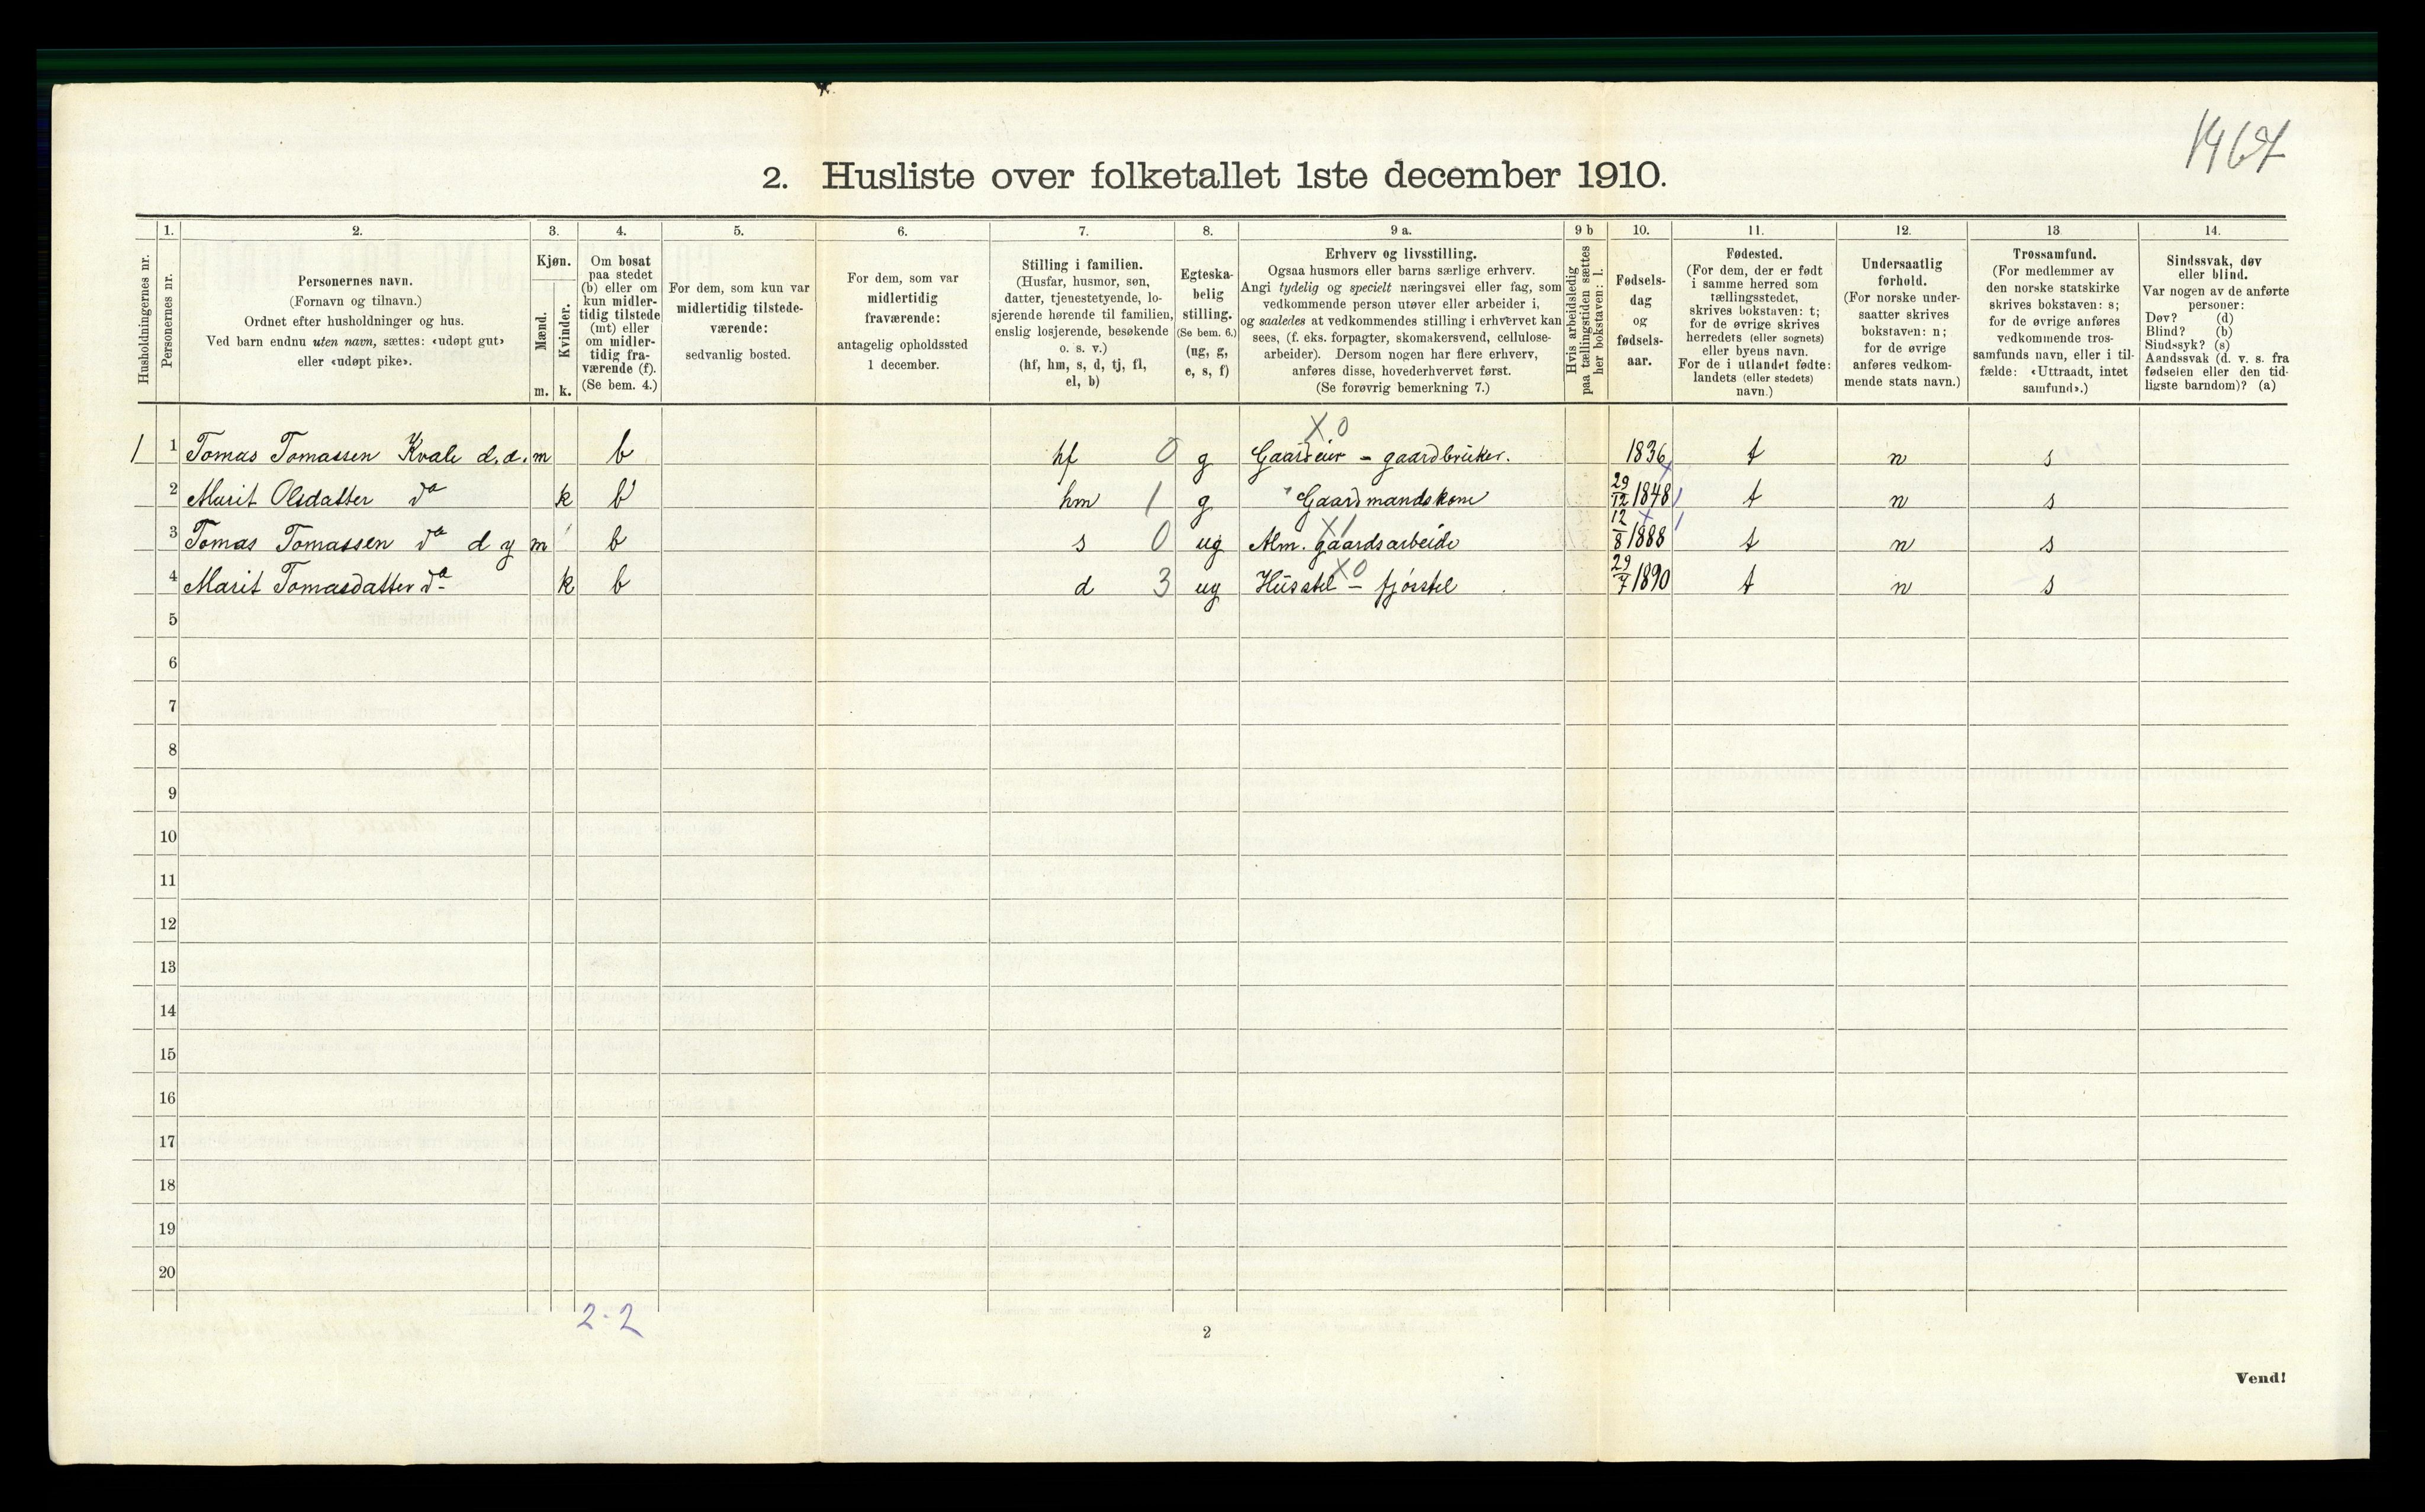 1467
2. Husliste over folketallet 1ste december 1910.
1. 2. 3. 4. 5. 6. 7. 8. 9 a. 9 b 10. 11. 12. 13 14.
Husholdningernes nr.
Personernes nr.
Personernes navn.
(Fornavn og tilnavn.)
Ordnet efter husholdninger og hus.
Ved barn endnu uten navn, sættes: «udøpt gut»
eller «udøpt pike».
Kjøn.
Mænd.
Kvinder.
m. k.
Om bosat
paa stedet
(b) eller om
kun midler-
tidig tilstede
(mt) eller
om midler-
tidig fra-
værende (f).
(Se bem. 4.)
For dem, som kun var
midlertidig tilstede-
værende:
sedvanlig bosted.
For dem, som var
midlertidig
fraværende:
antagelig opholdssted
1 december.
Stilling i familien.
(Husfar, husmor, søn,
datter, tjenestetyende, lo-
sjerende hørende til familien,
enslig losjerende, besøkende
o. s. v.)
(hf, hm, s, d, tj, fl,
el, b)
Egteska-
belig
stilling.
(Se bem. 6.)
(ug, g,
e, s, f)
Erhverv og livsstilling.
Ogsaa husmors eller barns særlige erhverv.
Angi tydelig og specielt næringsvei eller fag, som
vedkommende person utøver eller arbeider i,
og saaledes at vedkommendes stilling i erhvervet kan
sees, (f. eks. forpagter, skomakersvend, cellulose-
arbeider). Dersom nogen har flere erhverv,
anføres disse, hovederhvervet først.
(Se forøvrig bemerkning 7.)
Hvis arbeidsledig
paa tællingstiden sættes
her bokstaven: l.
Fødsels-
dag
og
fødsels-
aar.
Fødested.
(For dem, der er født
i samme herred som
tællingsstedet,
skrives bokstaven: t;
for de øvrige skrives
herredets (eller sognets)
eller byens navn.
For de i utlandet fødte:
landets (eller stedets)
navn.)
Undersaatlig
forhold.
(For norske under-
saatter skrives
bokstaven: n;
for de øvrige
anføres vedkom-
mende stats navn.)
Trossamfund.
(For medlemmer av
den norske statskirke
skrives bokstaven: s;
for de øvrige anføres
vedkommende tros-
samfunds navn, eller i til-
fælde: «Uttraadt, intet
samfund».)
Sindssvak, døv
eller blind.
Var nogen av de anførte
personer:
Døv? (d)
Blind? (b)
Sindssyk? (s)
Aandssvak (d. v. s. fra
fødselen eller den tid-
ligste barndom)? (a)
X 0
1 1 Tomas Tomassen Kvale d.æ. m b hf 0 g Gaardeier - gaardbruker. 1836 t n s
2 Marit Olsdatter do k b hm 1 g Gaardmandskone 29/12 1848 t n s
X 1
3 Tomas Tomassen do d y m b s 0 ug Alm. gaardsarbeide 12/8 1888 t n s
X 0
4 Marit Tomasdatter do k b d 3 ug Husstel - fjøsstel 29/7 1890 t n s
5
6
7
8
9
10
11
12
13
14
15
16
17
18
19
20
2-2
2
Vend!